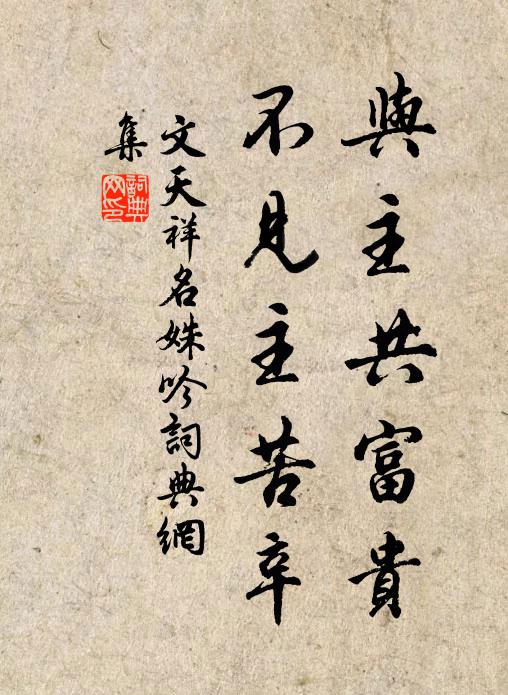 與主共富貴
不見主苦辛
文天祥名姝吟詞典網
集
詞典
网印